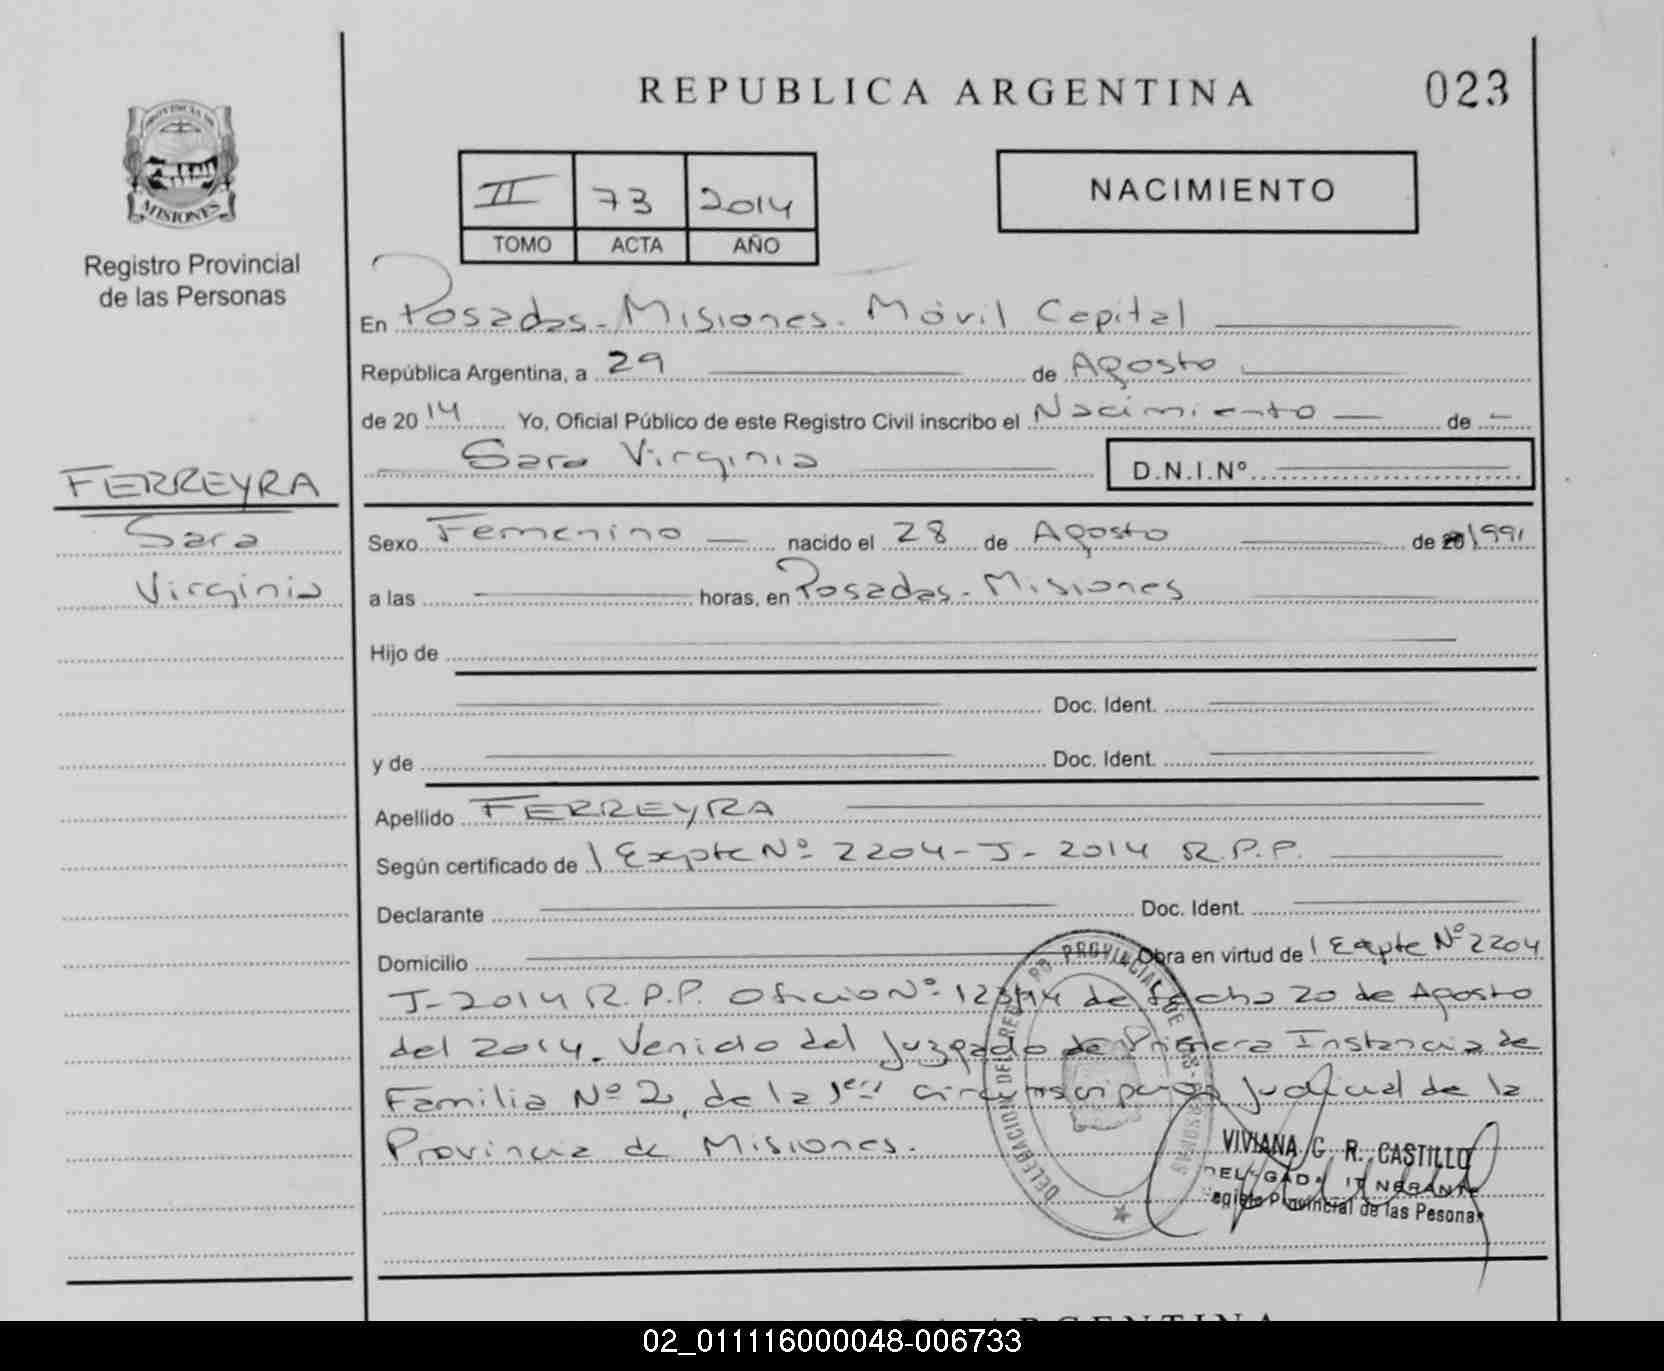 REPUBLICA ARGENTINA
023
PROVINCIA DE
MISIONES
Registro Provincial
de las Personas
II 73 2014
TOMO ACTA AÑO
NACIMIENTO
En Posadas - Misiones - Móvil Capital
República Argentina, a 29 de Agosto
de 2014 Yo, Oficial Público de este Registro Civil inscribo el Nacimiento de
Sara Virginia D.N.I.Nº
FERREYRA
Sara
Virginia
Sexo Femenino nacido el 28 de Agosto de 1991
a las horas, en Posadas - Misiones
Hijo de
Doc. Ident.
y de Doc. Ident.
Apellido FERREYRA
Según certificado de Expte Nº 2204-J-2014 R.P.P.
Declarante Doc. Ident.
Domicilio Obra en virtud de Expte Nº 2204
J-2014 R.P.P. Oficio Nº de fecha 20 de Agosto
del 2014. Venido del Juzgado de Primera Instancia de
Familia Nº 2, de la 1era circunscripcion Judicial de la
Provincia de Misiones.
DELEGACION DEL REG PROVINCIAL DE LAS PERSONAS
VIVIANA G. R. CASTILLO
DELEGADA ITINERANTE
Registro Provincial de las Pesonas
ARGENTINA
02_011116000048-006733